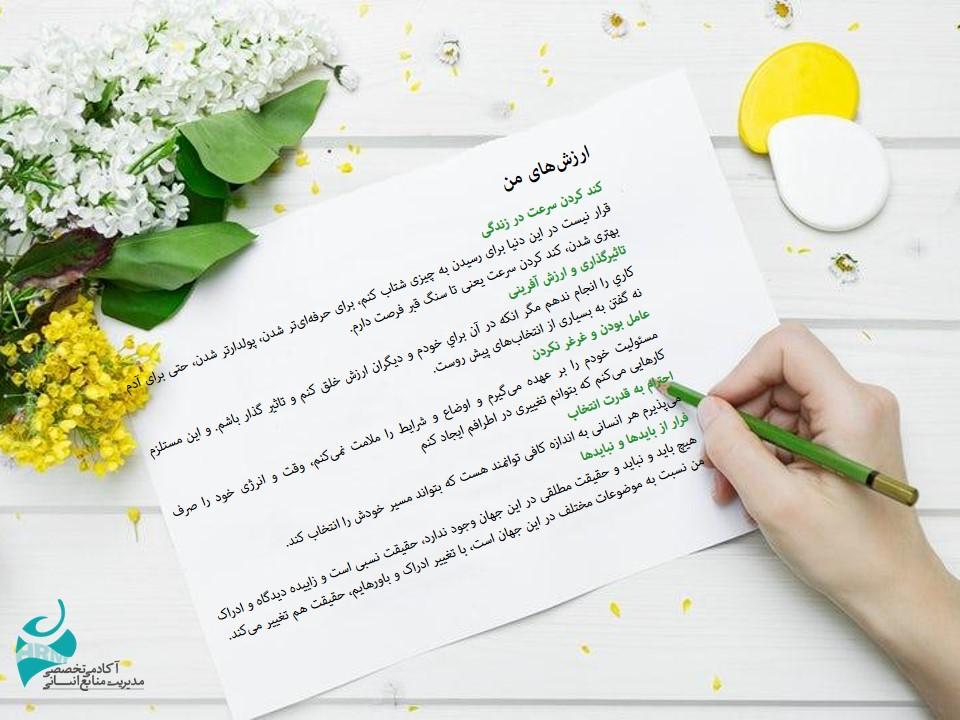 ارزش‌های من
کند کردن سرعت در زندگی
قرار نیست در این دنیا برای رسیدن به چیزی شتاب کنم، برای حرفه‌ای‌تر شدن، پولدارتر شدن، حتی برای آدم
بهتری شدن، کند کردن سرعت یعنی تا سنگ قبر فرصت دارم.
تاثیرگذاری و ارزش آفرینی
کاری را انجام ندهم مگر انکه در آن برای خودم و دیگران ارزش خلق کنم و تاثیر گذار باشم. و این مستلزم
نه گفتن به بسیاری از انتخاب‌های پیش روست.
عامل بودن و غرغر نکردن
مسئولیت خودم را بر عهده می‌گیرم و اوضاع و شرایط را ملامت نمی‌کنم، وقت و انرژی خود را صرف
کارهایی می‌کنم که بتوانم تغییری در اطرافم ایجاد کنم
احترام به قدرت انتخاب
می‌پذیرم هر انسانی به اندازه کافی توانمند هست که بتواند مسیر خودش را انتخاب کند.
فرار از بایدها و نبایدها
هیچ باید و نباید و حقیقت مطلقی در این جهان وجود ندارد، حقیقت نسبی است و زاییده دیدگاه و ادراک
من نسبت به موضوعات مختلف در این جهان است، با تغییر ادراک و باورهایم، حقیقت هم تغییر می‌کند.
HRM
آکادمی تخصصی
مدیریت منابع انسانی